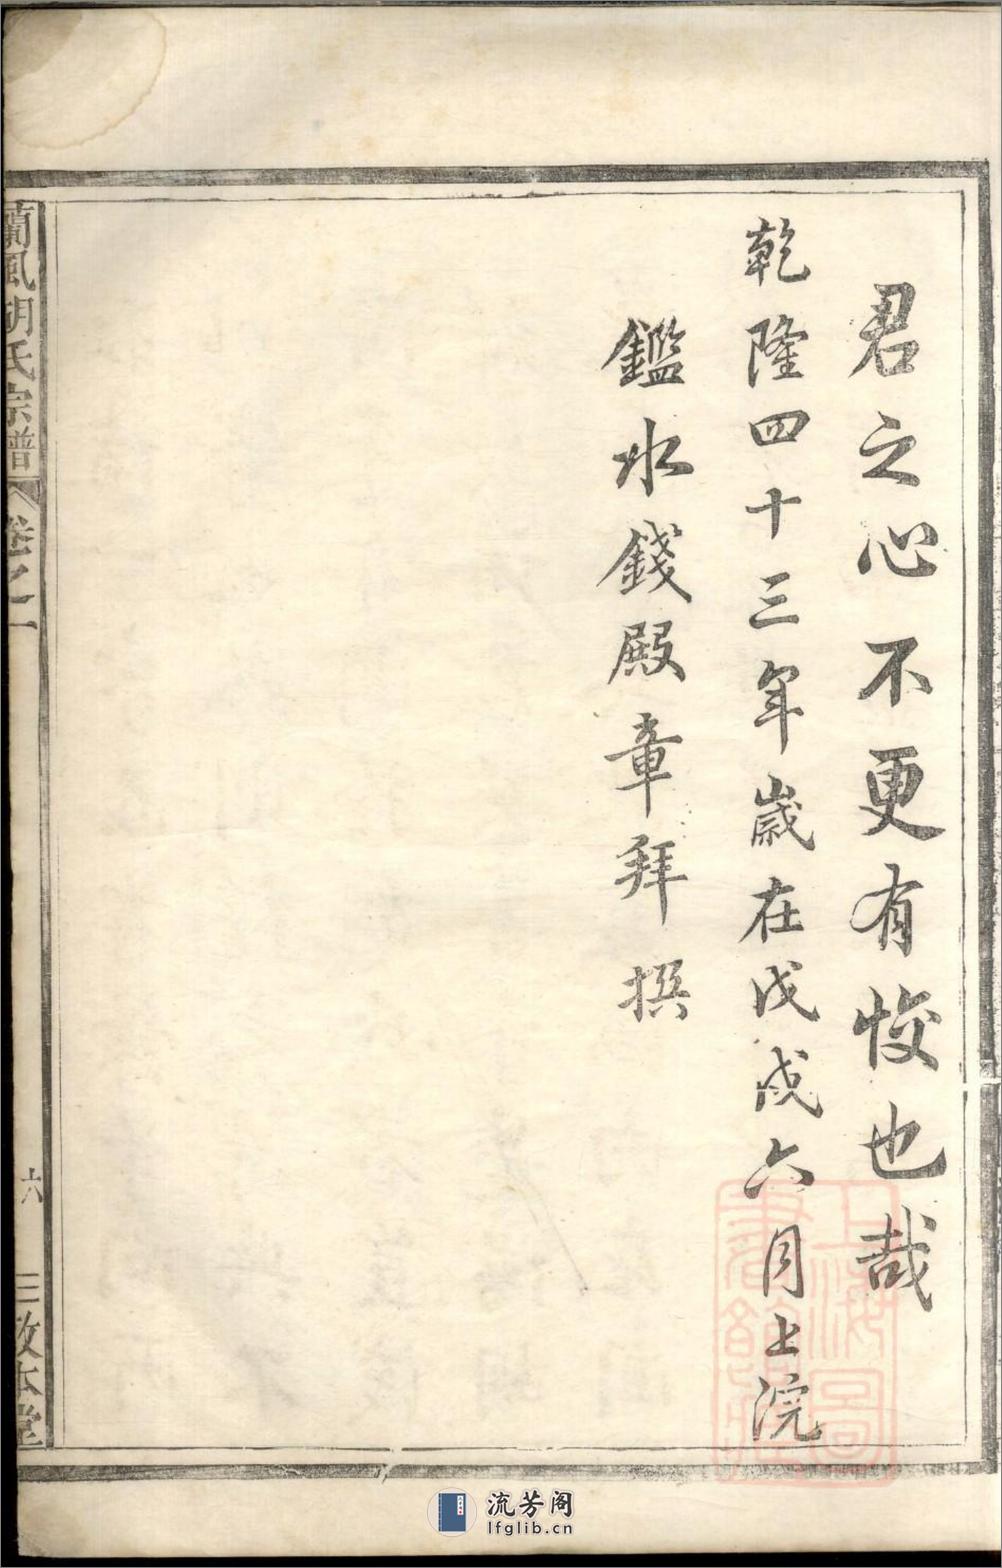 君之心不更有恔也哉
乾隆四十三年歲在戊戌六月上浣
鑑水錢殿章拜撰
蘭風胡氏宗譜
卷之一
六
三敬本堂
上海圖書館藏
流芳阁
lfglib.cn